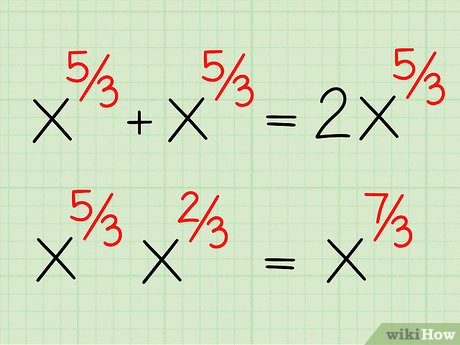 x^5/3 + x^5/3 = 2x^5/3
x^5/3 x^2/3 = x^7/3
wikiHow